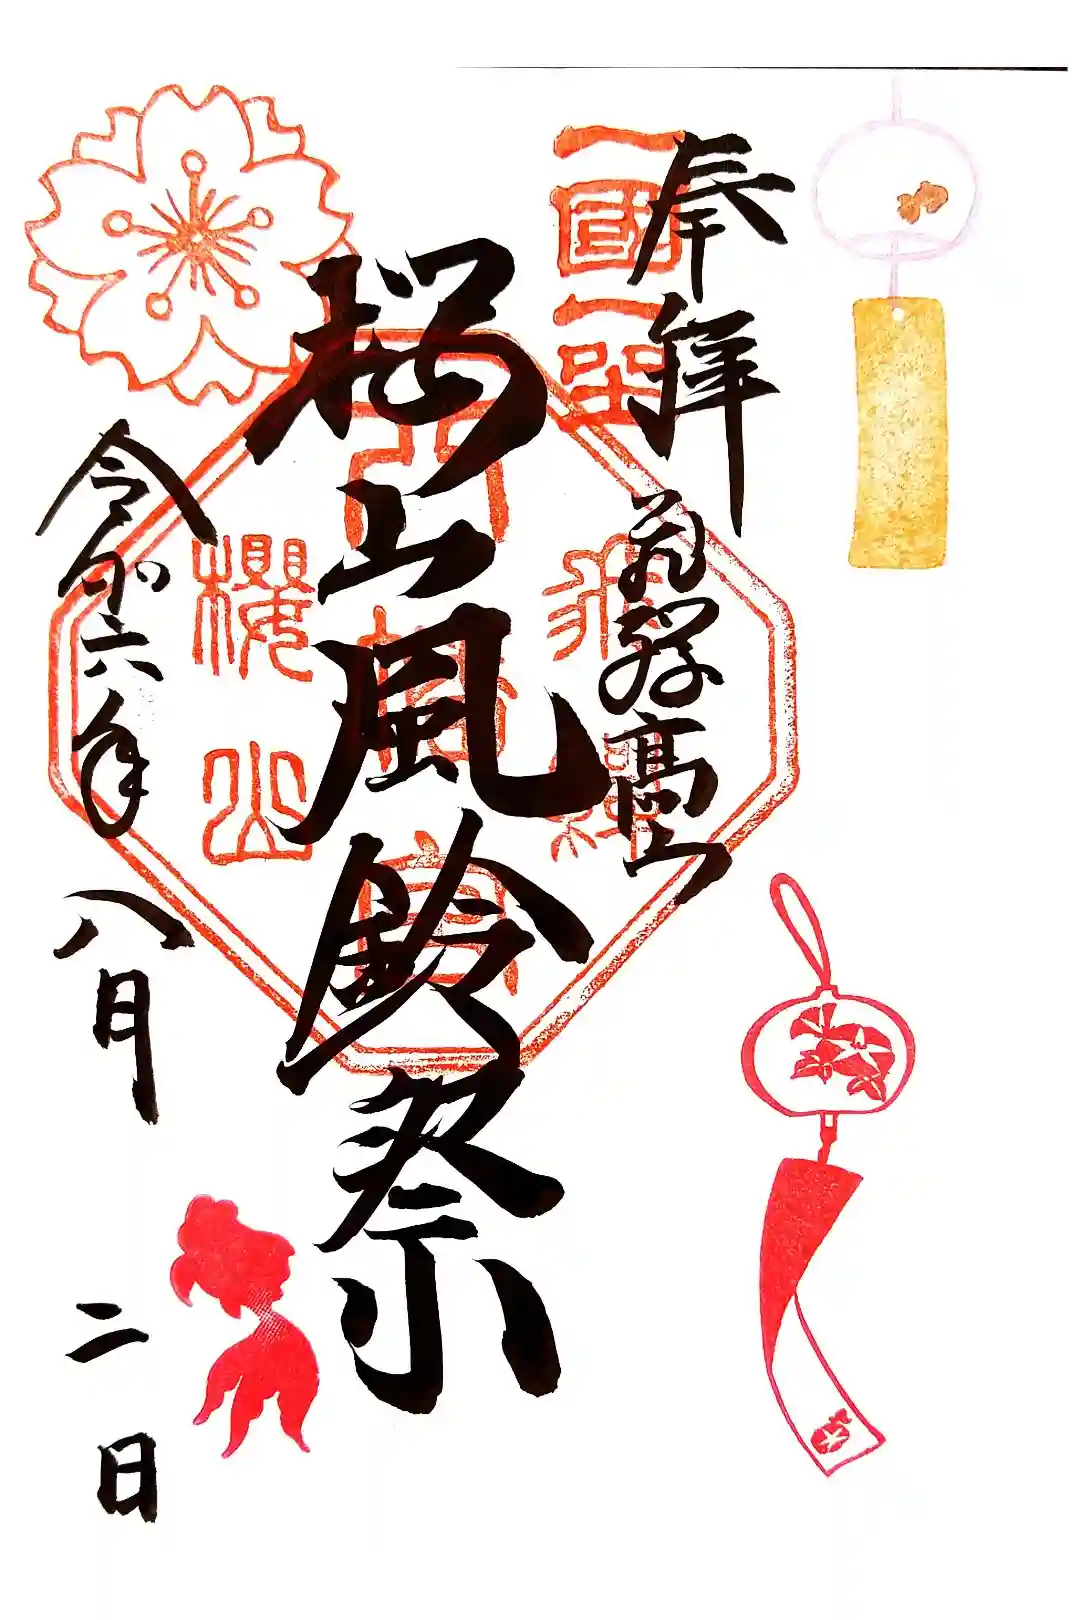 奉拝
飛騨高山
桜山風鈴祭
令和六年八月二日
一國一社
櫻山